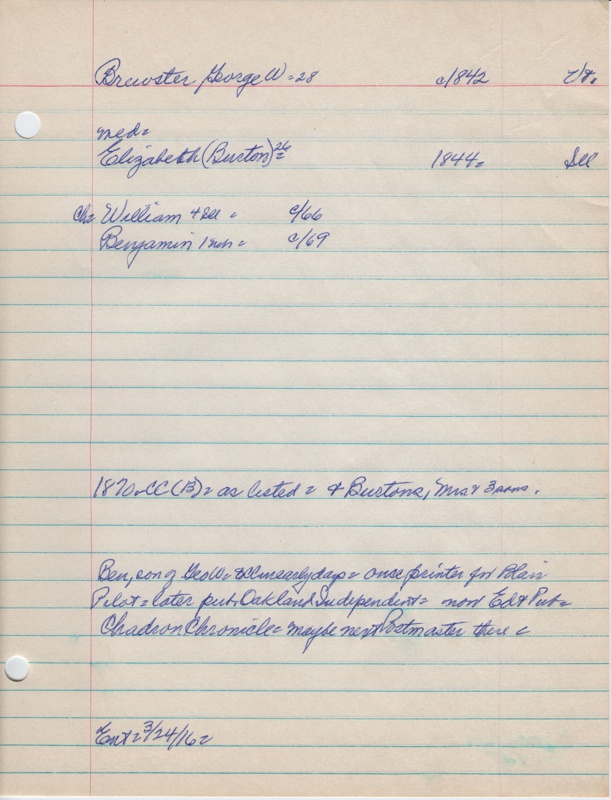 Brewster, George W = 28 c/1842 Vt.
med =
Elizabeth (Burton) 26 = 1844 = Ill
Ch = William 4 Ill = c/66
Benjamin 1 = c/69
1870 = CC (B) = as listed = & Burtons, Mrs & 3 sons.
Ben, son of Geo W = early days = once printer for Blair
Pilot = later pub. Oakland Independent = now Ed & Pub =
Chadron Chronicle = maybe next Postmaster there =
Ent = 3/24/16 =